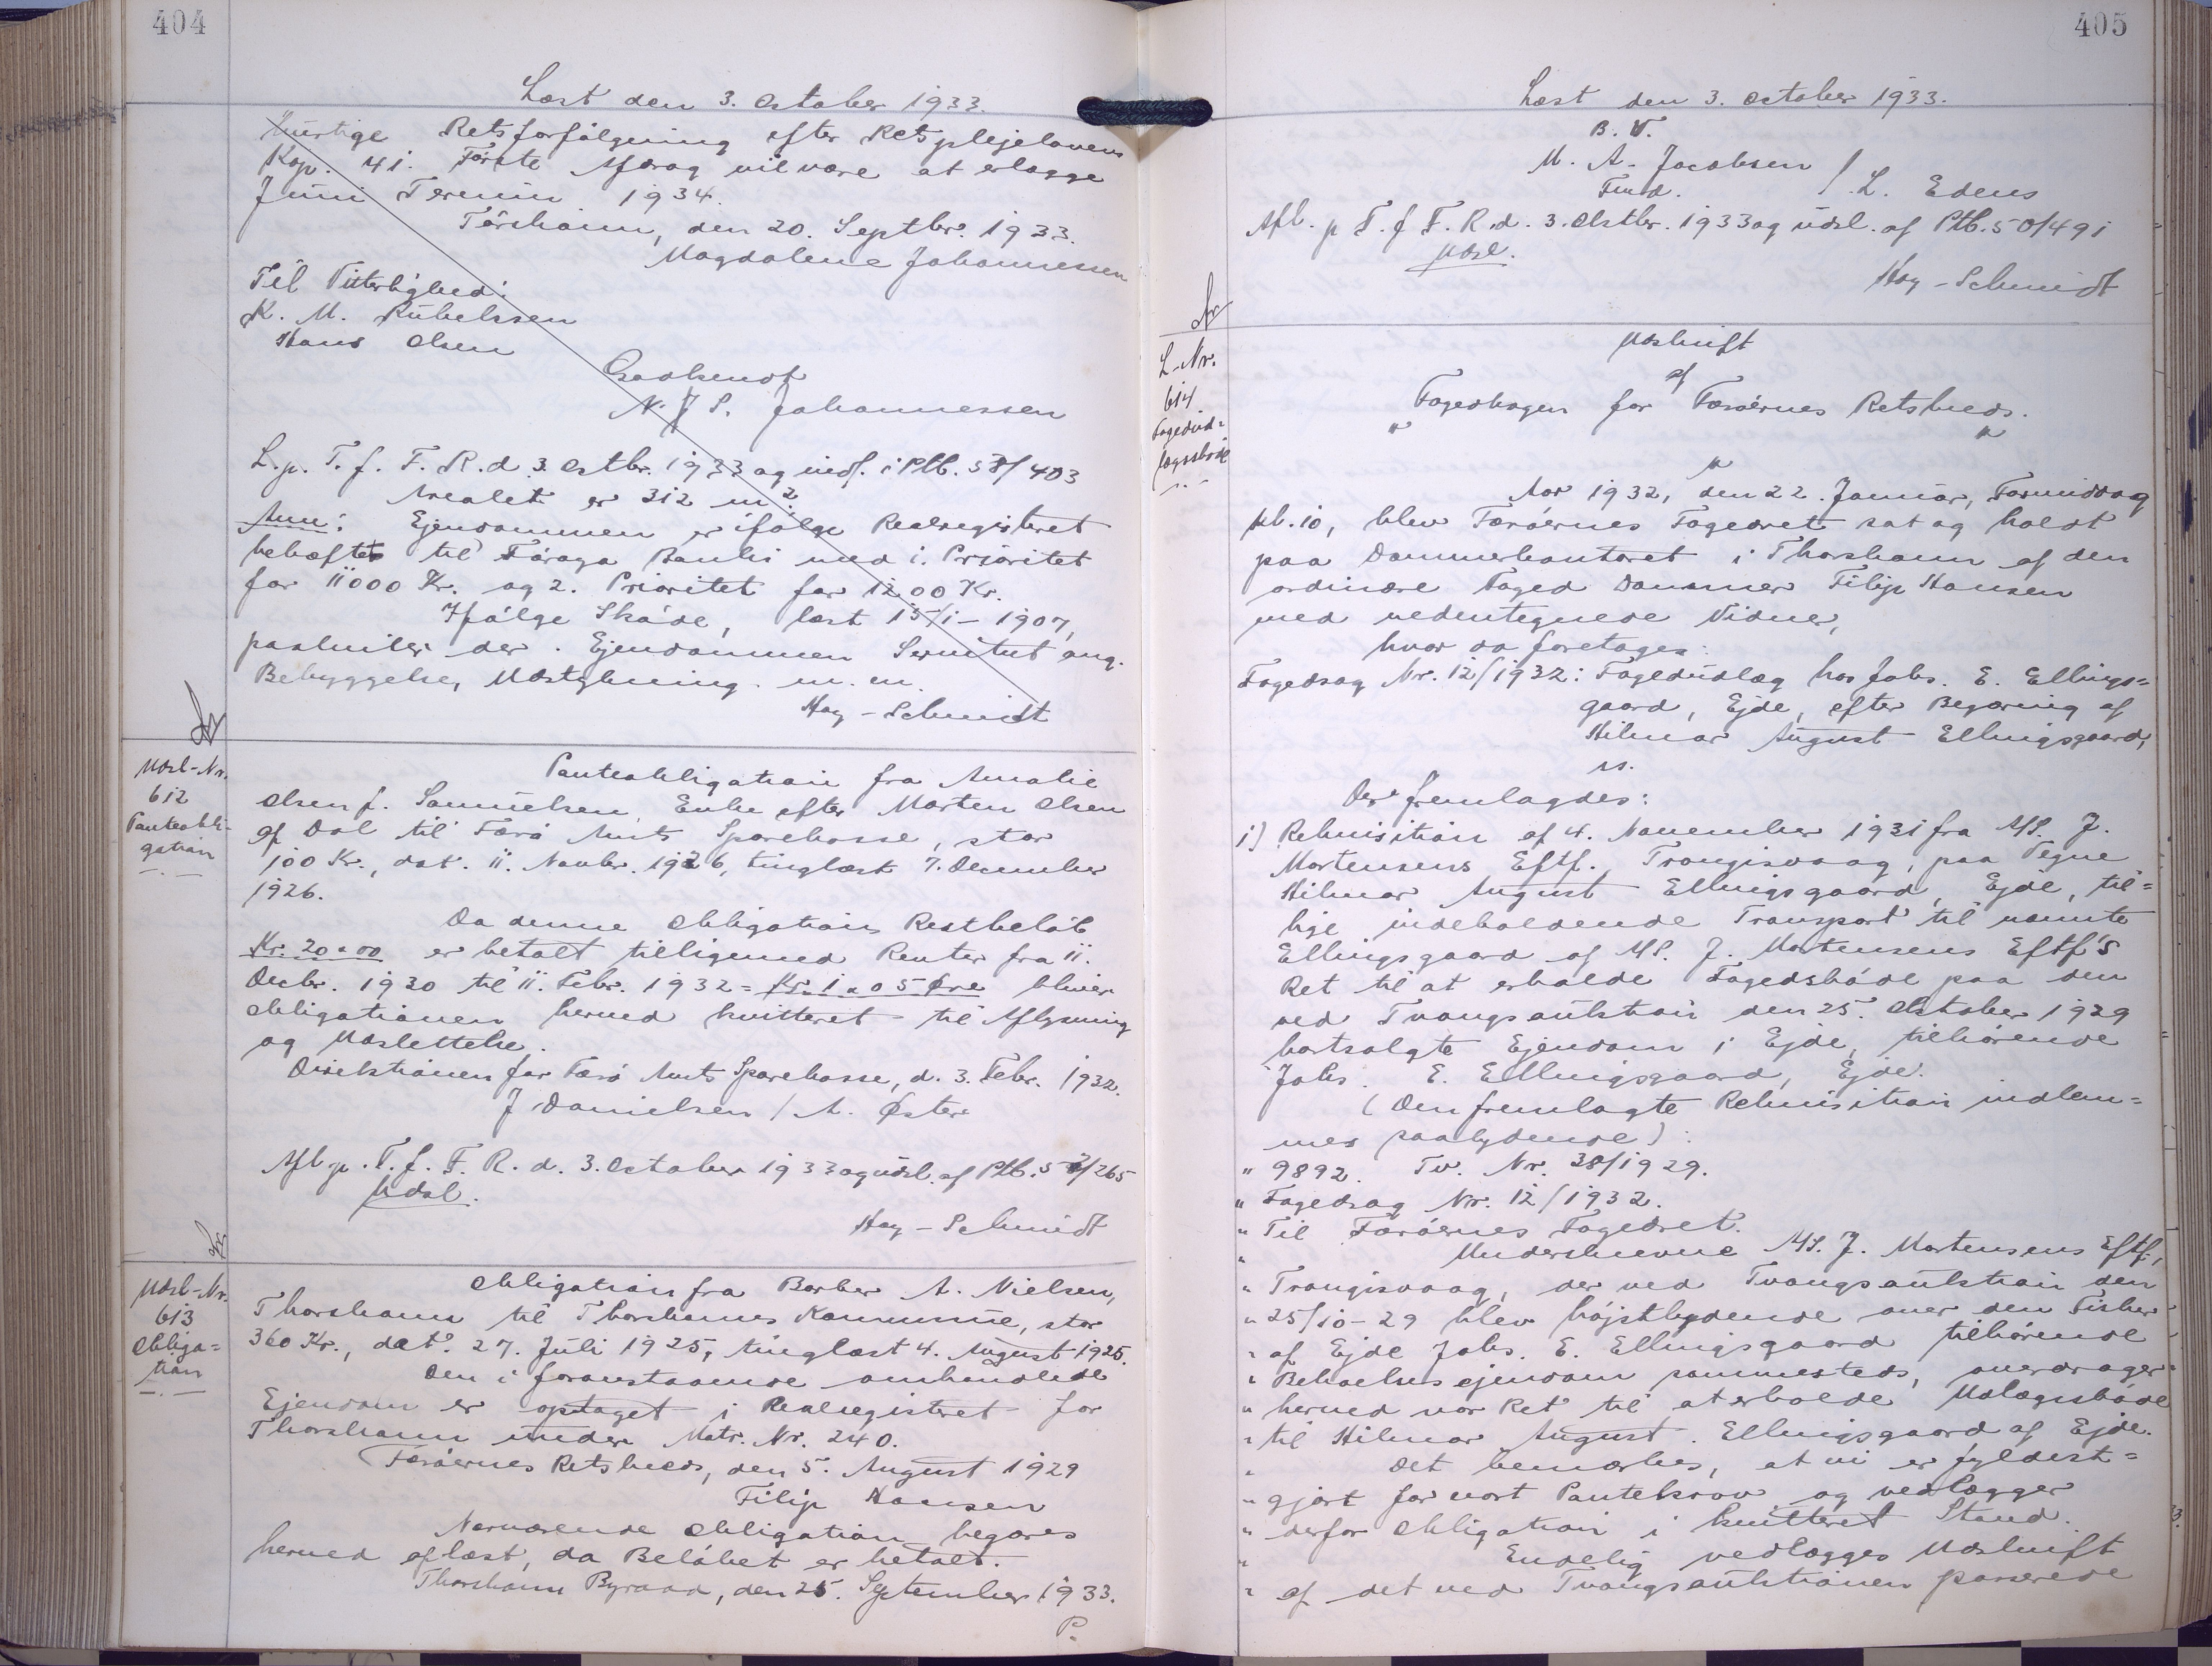 404
Læst den 3. October 1933.
hurtige Retsforfølgning efter Retsplejelovens
Kap. 41. Første Afdrag vil være at erlægge
Juni Termin 1934.
Tórshavn, den 20. Septbr. 1933.
Magdalena Johannessen
Til Vitterlighed:
K. M. Rúbeksen
Hans Olsen
Godkendt
N. J. S. Johannessen
L. p. T. f. F. R. d. 3. Octbr. 1933 og indf. i Ptb. 58/403
Arealet er 312 m2.
Anm: Ejendommen er ifølge Realregisteret
behæftet til Føroya Banki med 1. Prioritet
for 11000 Kr. og 2. Prioritet for 1200 Kr.
Ifølge Skøde, læst 15/1-1907,
paahviler der Ejendommen Servitut ang.
Bebyggelse, Udstykning m. m.
Hoy-Schmidt
Udsl-Nr.
612
Panteobli-
gation
Panteobligation fra Amalie
Olsen f. Samuelsen, Enke efter Morten Olsen
af Dal til Færø Amts Sparekasse, stor
100 Kr., dat. 11. Novbr. 1926, tinglæst 7. December
1926.
Da denne Obligations Restbeløb
Kr. 20,00 er betalt tilligemed Renter fra 11.
Decbr. 1930 til 11. Febr. 1932 = Kr. 1,05 Øre bliver
Obligationen herved kvitteret til Aflysning
og Udslettelse.
Direktionen for Færø Amts Sparekasse, d. 3. Febr. 1932.
J Danielsen / A. Øster
Afl. p. T. f. F. R. d. 3. October 1933 og udsl. af Ptb. 52/265
Udsl.
Hoy-Schmidt
Udsl-Nr.
613
Obliga=
tion
Obligation fra Barber A. Nielsen,
Thorshavn til Thorshavns Kommune, stor
360 Kr., dat. 27. Juli 1925, tinglæst 4. August 1925.
Den i foranstaaende omhandlede
Ejendom er optaget i Realregisteret for
Thorshavn under Matr. Nr. 240.
Færøernes Retskreds, den 5. August 1929
Filip Hansen
Nærværende Obligation begæres
herved aflæst, da Beløbet er betalt.
Thorshavn Byraad, den 25. September 1933.
P.
405
Læst den 3. October 1933.
B. V.
M. A. Jacobsen / L. Edens
Fmd.
Afl. p T. f F. R. d. 3. Octbr. 1933 og udsl. af Ptb. 50/491
Udsl.
Hoy-Schmidt
L-Nr.
614
Fogedud=
lægsskøde
Udskrift
af
Fogedbogen for Færøernes Retskreds.
Aar 1932, den 22. Januar, Formiddag
kl. 10, blev Færøernes Fogedret sat og holdt
paa Dommerkontoret i Thorshavn af den
ordinære Foged Dommer Filip Hansen
med undertegnede Vidner,
hvor da foretages:
Fogedsag Nr. 12/1932: Fogedudlæg hos Johs. E. Ellings=
gaard, Ejde, efter Begæring af
Hilmar August Ellingsgaard,
Der fremlagdes:
1) Rekvisition af 4. November 1931 fra M/S. J.
Mortensens Eftf. Trongisvaag, paa Vegne
Hilmar August Ellingsgaard, Ejde, til=
lige indeholdende Transport til nævnte
Ellingsgaard af M/S. J. Mortensens Eftf's
Ret til at erholde Fogedskøde paa den
ved Tvangsauktion den 25. Oktober 1929
bortsolgte Ejendom i Ejde, tilhørende
Johs. E. Ellingsgaard, Ejde.
(Den fremlagte Rekvisition indlem=
mes saalydende):
" 9892. Tv. Nr. 38/1929.
" Fogedsag Nr. 12/1932.
" Til Færøernes Fogedret.
" Underskrevne M/S. J. Mortensens Eftf,
" Trongisvaag, der ved Tvangsauktion den
" 25/10-29 blev højstbydende over den Fisker
" af Ejde Johs. E. Ellingsgaard tilhørende
" Beboelsesejendom sammesteds, overdrager
" herved vor Ret til at erholde Udlægsskøde
" til Hilmar August Ellingsgaard af Ejde.
" Det bemærkes, at vi er fyldest=
" gjort for vort Pantekrav og vedlægger
" derfor Obligation i kvitteret Stand.
" Endelig vedlægges Udskrift
" af det ved Tvangsauktionen passerede